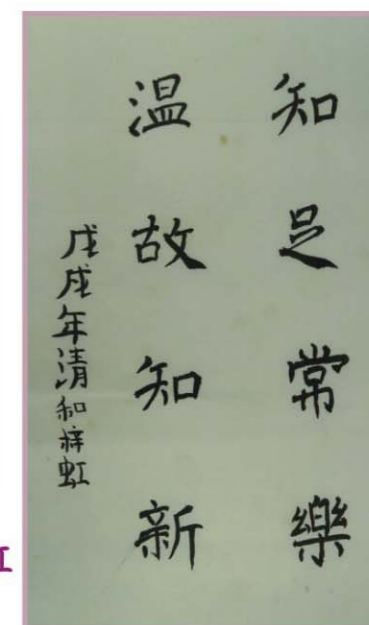 知足常樂
温故知新
戊戌年清和梓虹